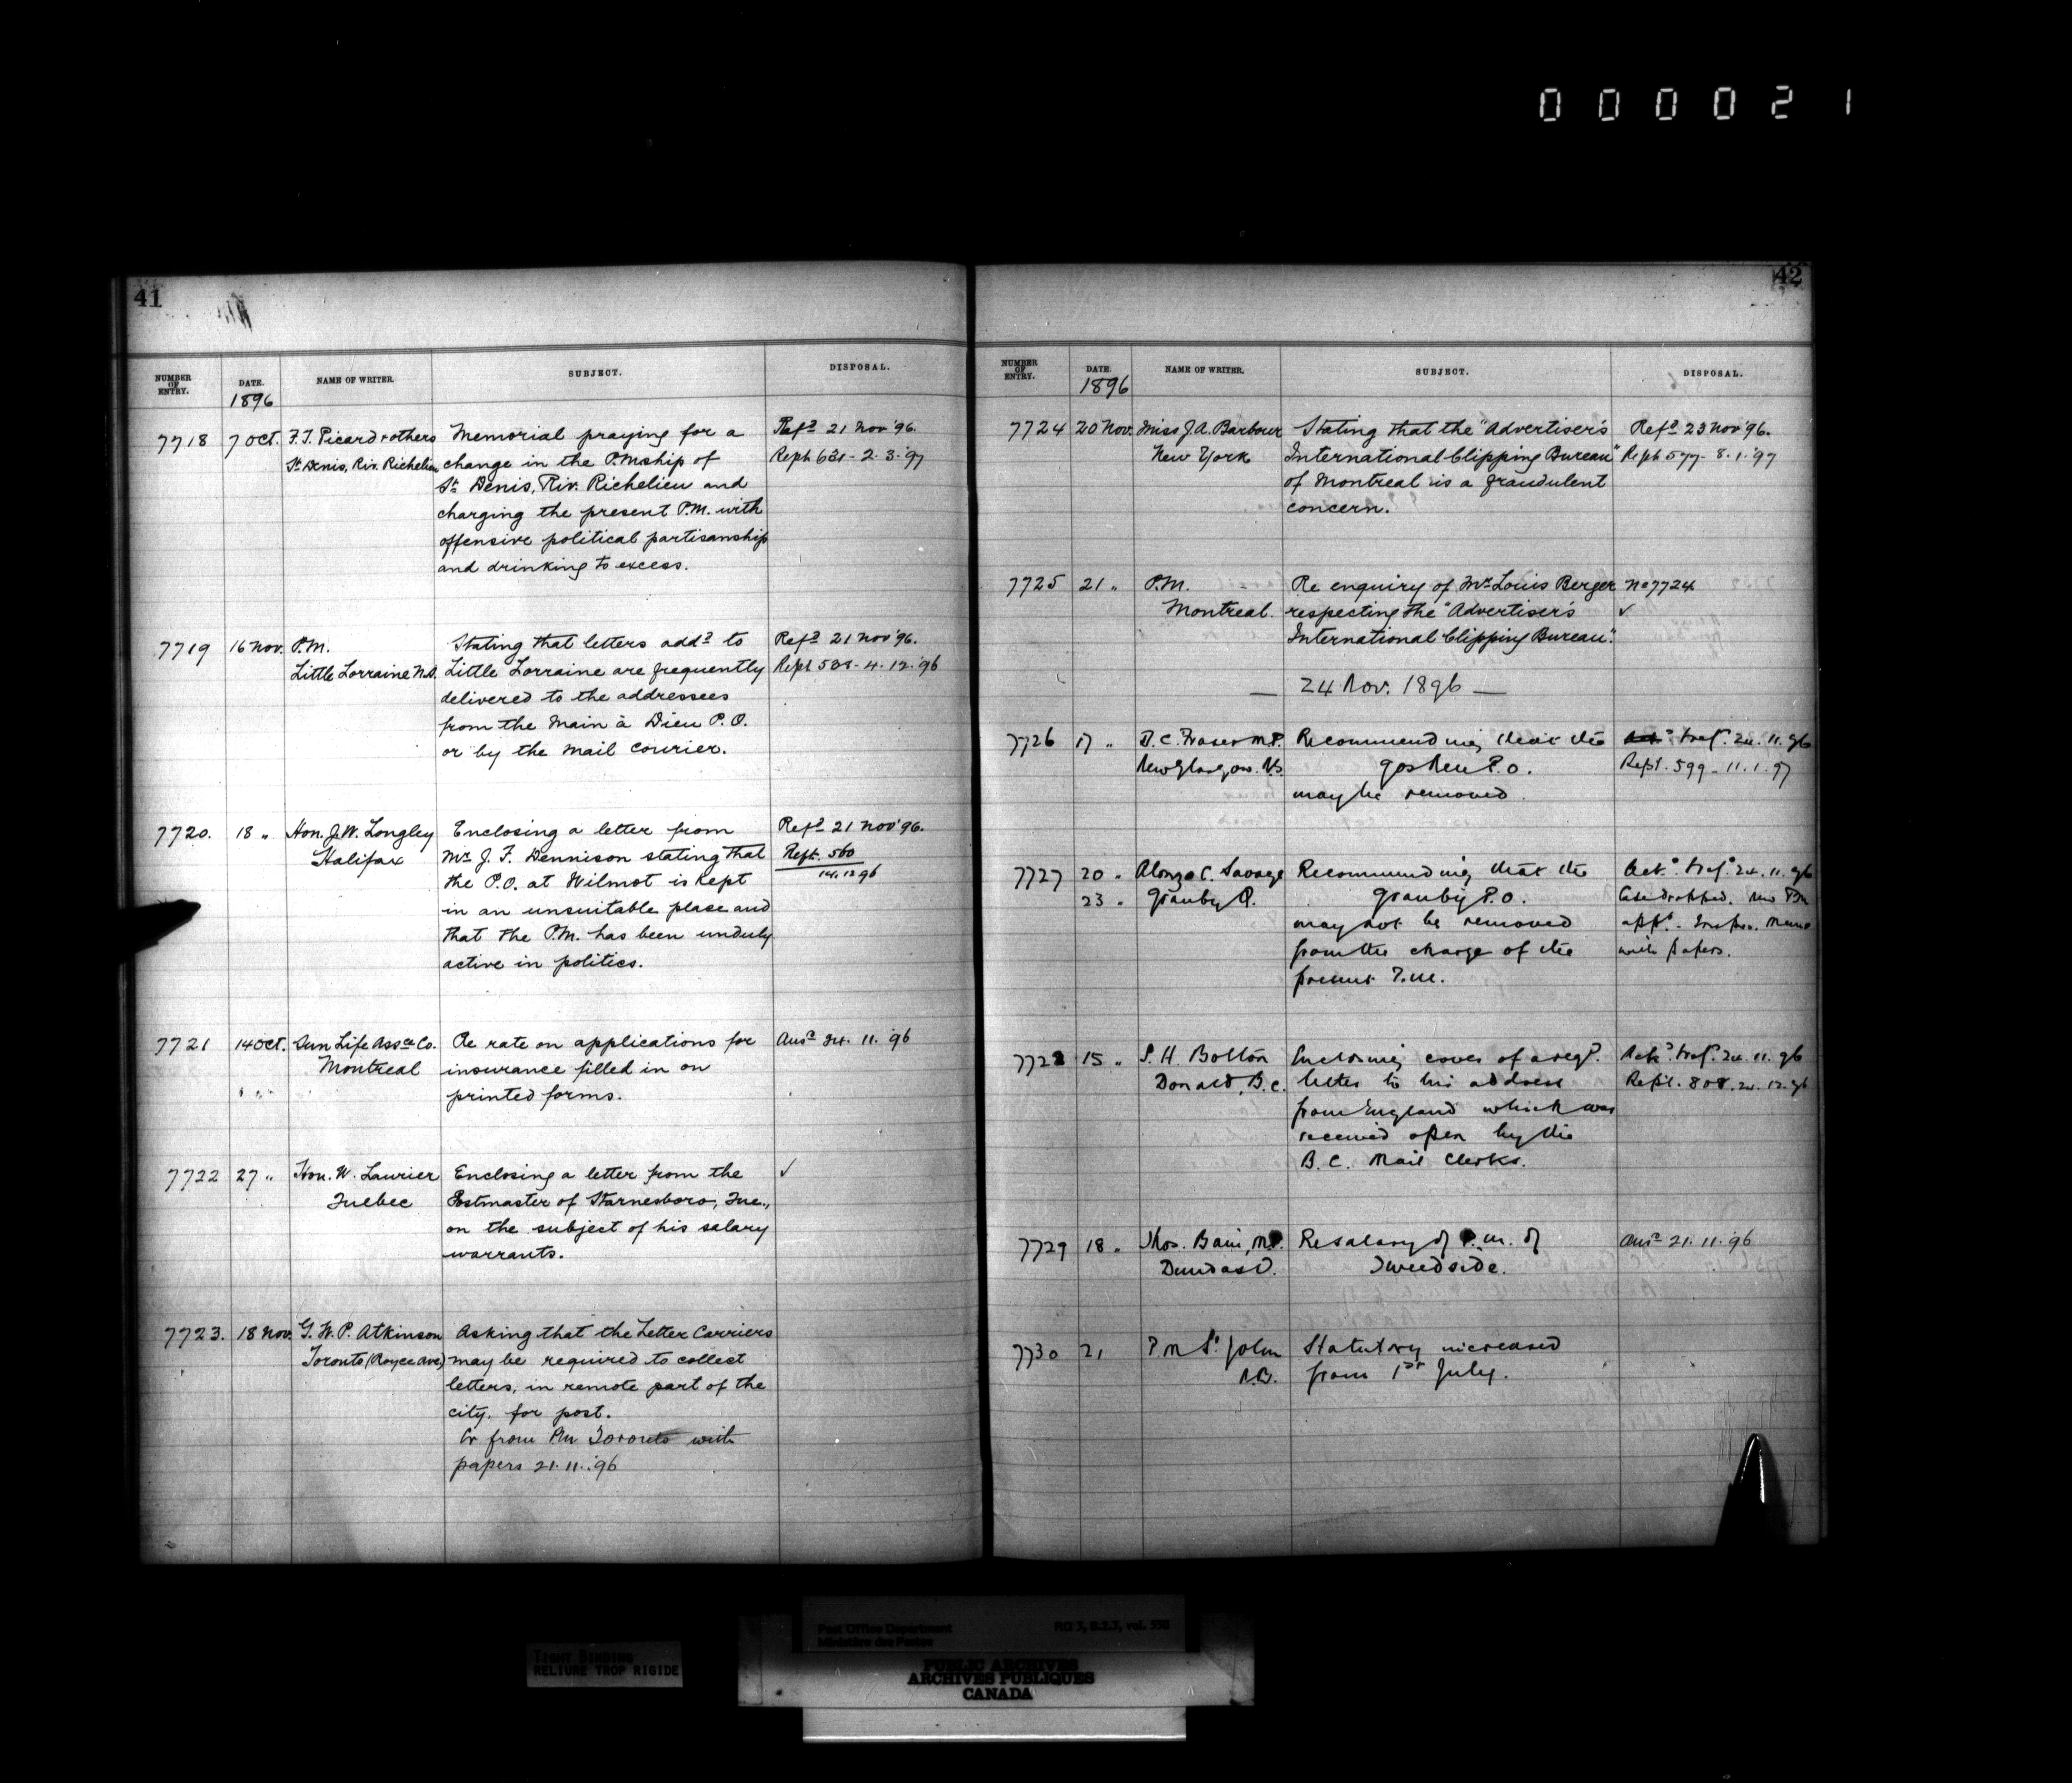 000021
41
NUMBER OF ENTRY. DATE. NAME OF WRITER. SUBJECT. DISPOSAL.
1896
7718 7 Oct. F.T. Picard & others Memorial praying for a Refd 21 Nov '96.
St Denis, Riv. Richelieu change in the P.Mship of Reph 631 - 2.3.'97
St Denis, Riv. Richelieu and
charging the present P.M. with
offensive political partisanship
and drinking to excess.
7719 16 Nov. P.M. Stating that letters addd to Refd 21 Nov '96.
Little Lorraine N.S. Little Lorraine are frequently Reph 538 - 4.12.'96
delivered to the addressees
from the Main à Dieu P.O.
or by the Mail Courier.
7720. 18 " Hon. J.W. Longley Enclosing a letter from Refd 21 Nov '96.
Halifax Mr J. F. Dennison stating that Rept. 560
the P.O. at Wilmot is kept 14.12.96
in an unsuitable place and
that the P.M. has been unduly
active in politics.
7721 14 Oct. Sun Life Assce Co. Re rate on applications for Ansd 24. 11. '96
Montreal insurance filled in on
printed forms.
7722 27 " Hon. W. Laurier Enclosing a letter from the ✓
Quebec Postmaster of Starnesboro, Que.,
on the subject of his salary
warrants.
7723. 18 Nov. G. W. P. Atkinson Asking that the Letter Carriers
Toronto (Royce Ave) may be required to collect
letters, in remote part of the
city, for post.
from PM Toronto with
papers 21.11.'96
42
NUMBER OF ENTRY. DATE. NAME OF WRITER. SUBJECT. DISPOSAL.
1896
7724 20 Nov. Miss J.A. Barbour Stating that the "Advertiser's Refd 23 Nov '96.
New York International Clipping Bureau" Reph 577 - 8.1.'97
of Montreal is a fraudulent
concern.
7725 21 " P.M. Re enquiry of Mr Louis Berger No 7724
Montreal. respecting the "Advertiser's ✓
International Clipping Bureau".
— 24 Nov. 1896 —
7726 17 " D.C. Fraser M.P. Recommending that the Refd. 24. 11. 96
New Glasgow. N.S. Goshen P.O. Rept. 599 - 11.1.97
may be removed.
7727 20 " Alonzo C. Savage Recommending that the Ackd. Refd. 24. 11. 96
23 " Granby Q. Granby P.O. Case dropped. New PM
may not be removed appd. - Memo
from the charge of the with papers.
present P.M.
7728 15 " S. H. Bolton Enclosing cover of a regd. Ackd. Refd. 24. 11. 96
Donald, B.C. letter to his address Rept. 808. 24. 12. 96
from England which was
received open by the
B.C. Mail Clerks.
7729 18 " Thos. Bain, M.P. Re salary of P.M. of Ansd 21.11.'96
Dundas O. Tweedside.
7730 21 P M St John Statutory increased
N.B. from 1st July.
TIGHT BINDING
RELIURE TROP RIGIDE
Post Office Department RG 3, B.2.3, vol. 550
Ministère des Postes
PUBLIC ARCHIVES
ARCHIVES PUBLIQUES
CANADA